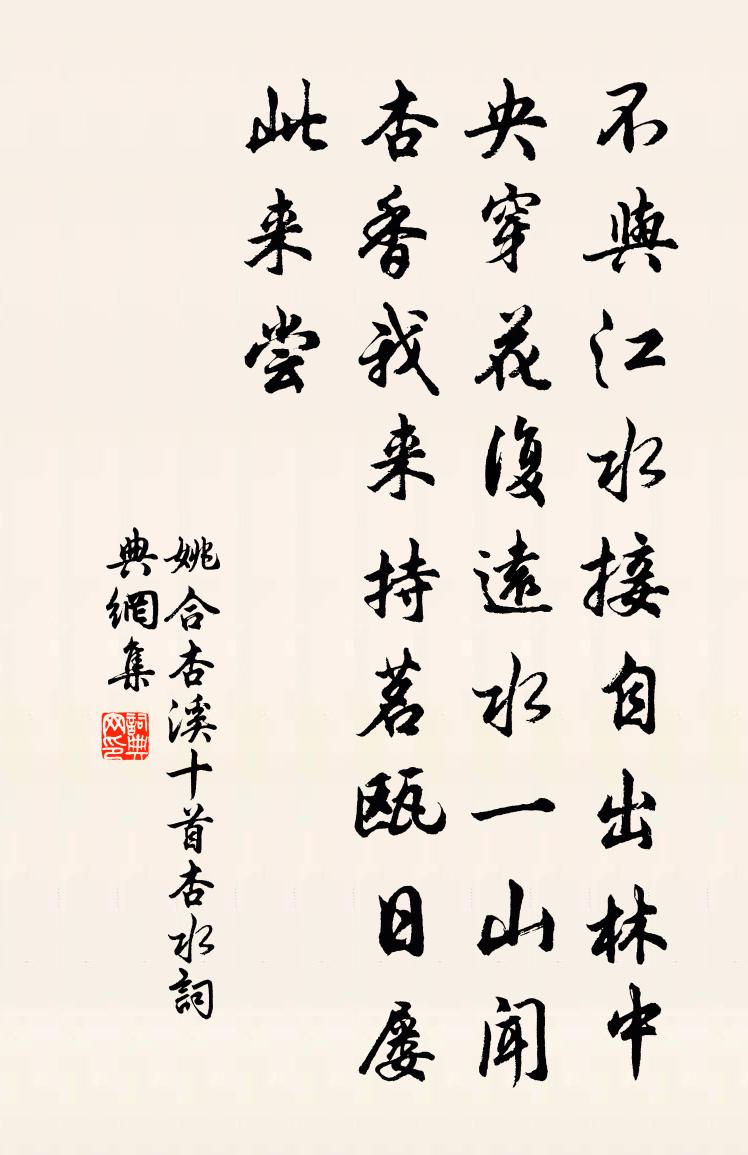 不與江水接自出林中
央穿花復遠水一山聞
杏香我来持茗甌日屡
此来尝
姚合杏溪十首杏水詞
典網集
詞典网印